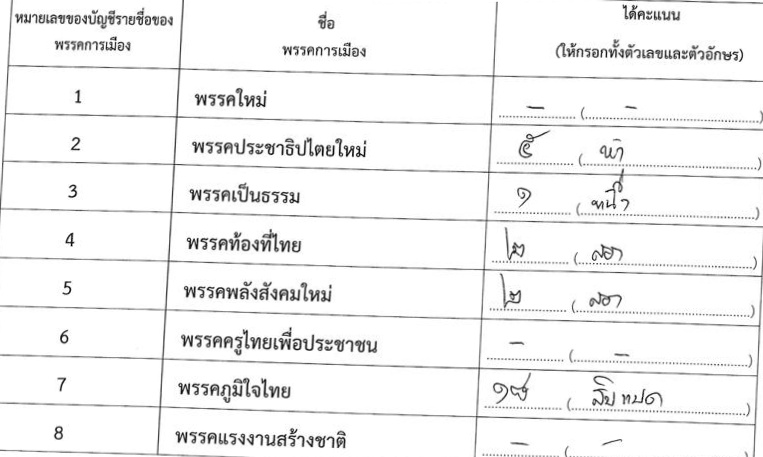 หมายเลขของบัญชีรายชื่อของ พรรคการเมือง ชื่อ พรรคการเมือง ได้คะแนน (ให้กรอกทั้งตัวเลขและตัวอักษร)
1 พรรคใหม่ - (-)
2 พรรคประชาธิปไตยใหม่ ๕ (ห้า)
3 พรรคเป็นธรรม ๑ (หนึ่ง)
4 พรรคท้องที่ไทย ๒ (สอง)
5 พรรคพลังสังคมใหม่ ๒ (สอง)
6 พรรคครูไทยเพื่อประชาชน - (-)
7 พรรคภูมิใจไทย ๑๘ (สิบแปด)
8 พรรคแรงงานสร้างชาติ - (-)